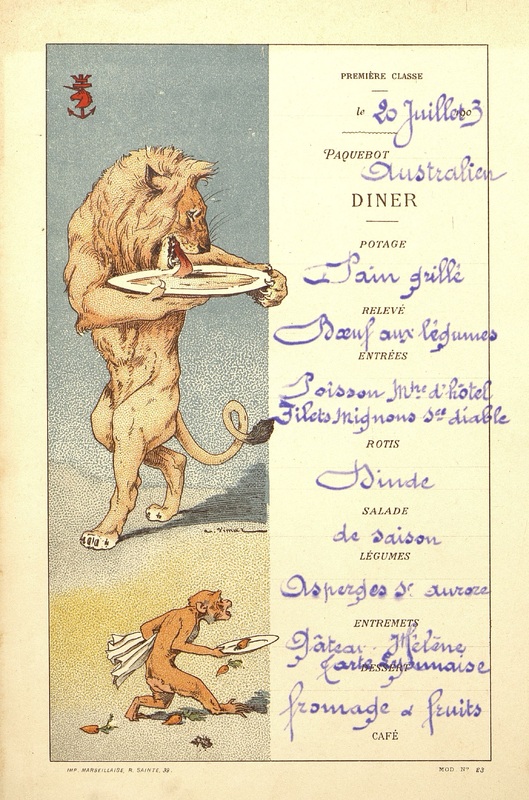 PREMIÈRE CLASSE
le 20 Juillet 1903
PAQUEBOT
Australien
DINER
POTAGE
Pain grillé
RELEVÉ
Bœuf aux légumes
ENTRÉES
Poisson Mtre d'hôtel
Filets Mignons Sce diable
ROTIS
Dinde
SALADE
de saison
LÉGUMES
Asperges Sce aurore
ENTREMETS
Gâteau Hélène
DESSERT
fromage & fruits
CAFÉ
IMP. MARSEILLAISE, R. SAINTE, 39.
MOD. No 23